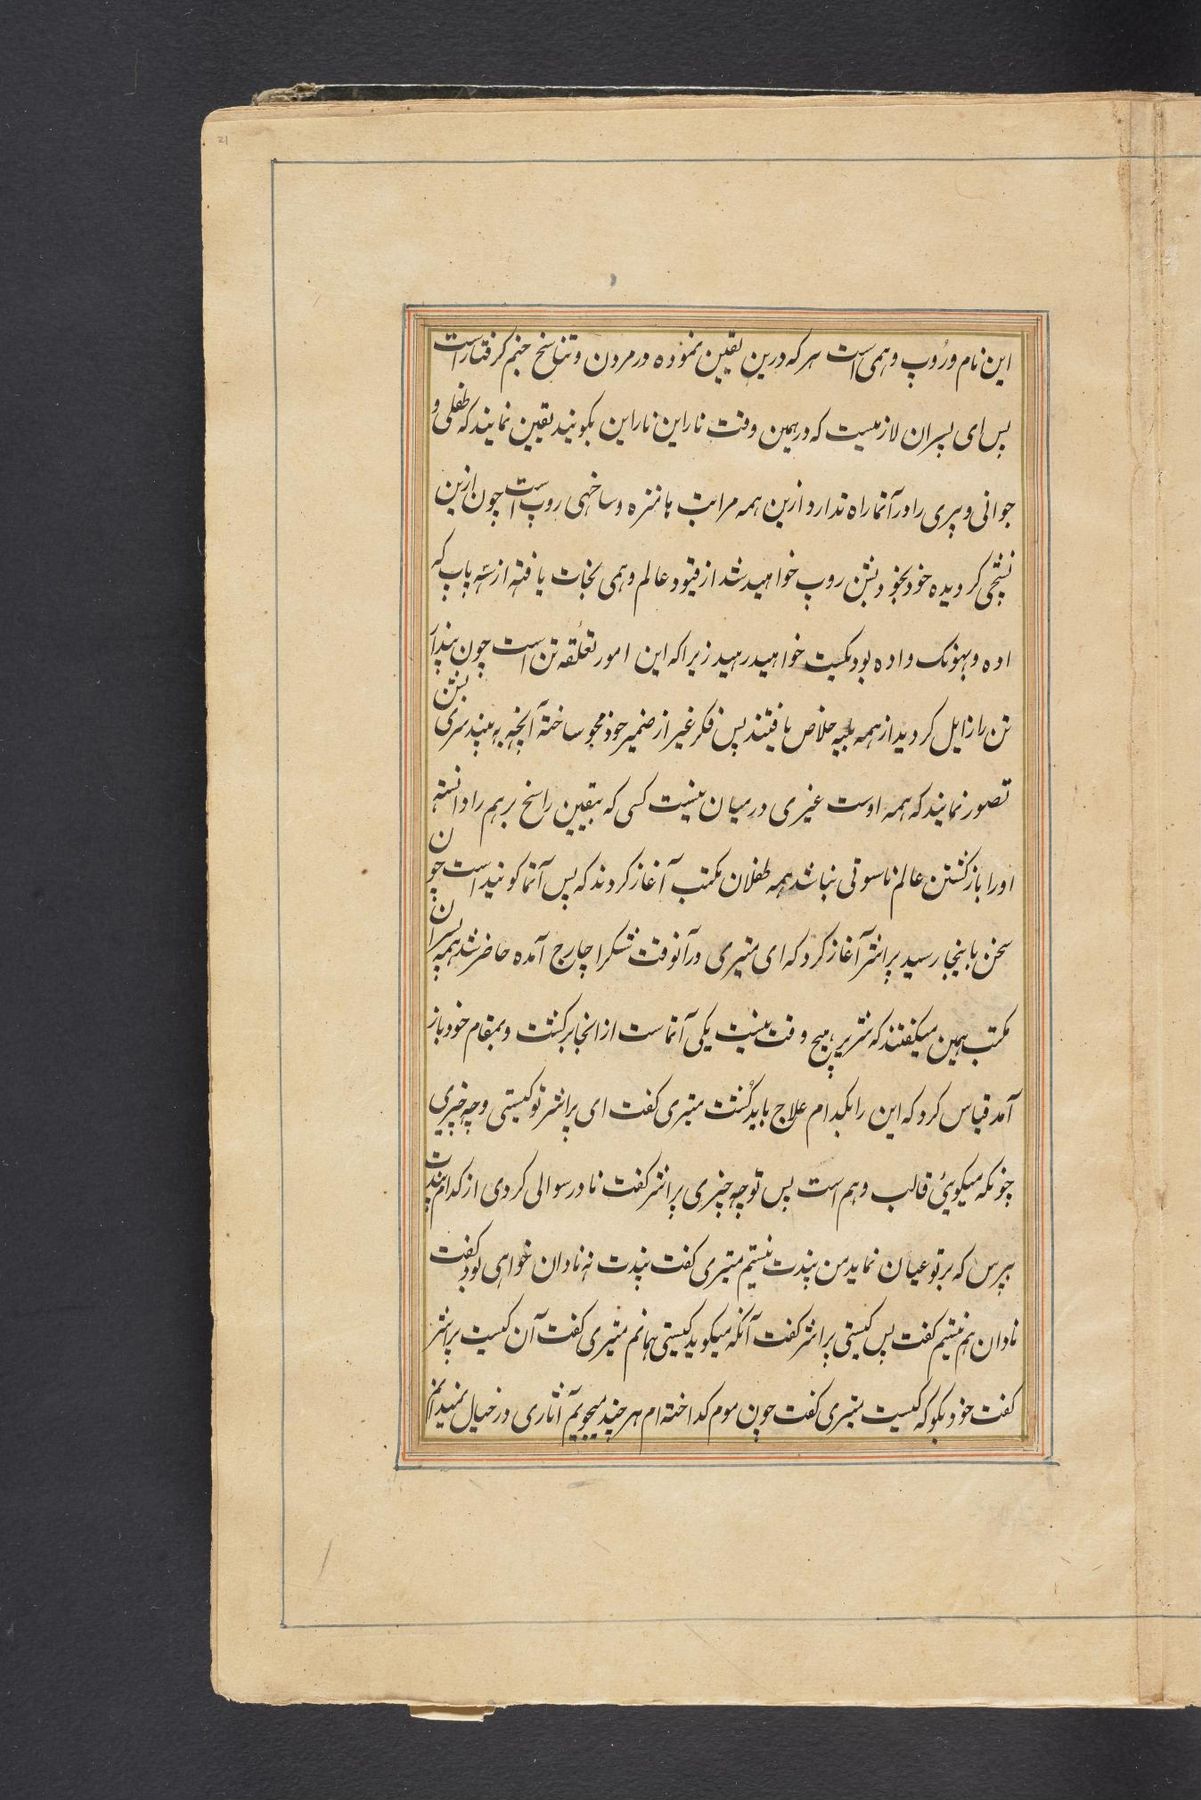 این نام و روپ وهمی است هر که درین یقین نموده در مردن و تناسخ جنم گرفتار است
پس ای پسران لازمیست که در همین وقت ناراین ناراین بگویند یقین نمایند که طفلی و
جوانی و پیری را در آتما راه ندارد ازین همه مراتب ها منزه و ساخهی روپ است چون ازین
نشچی گردیده خود بخود بشن روپ خواهید شد از قیود عالم وهمی نجات یافته از سه پاپ که
اده و بهوتک واده بودکیت خواهید رهید زیرا که این امور تعلقه تن است چون پندار
تن را زایل کردید از همه بلیه خلاص یافتند پس فکر غیر از ضمیر خود محو ساخته آنچه به بیند سری بشن
تصور نمایند که همه اوست غیری در میان نیست کسی که بیقین راسخ برهم را دانسته
اورا بازگشتن عالم ناسوتی نباشد همه طفلان مکتب آغاز کردند که پس آتما گویند است چون
سخن باینجا رسید پراشر آغاز کرد که ای متیری در آنوقت شکراچارج آمده حاضر شد همه پسران
مکتب همین میگفتند که شریر هیچ وقت نیست یکی آتما است از انجا برگشت و بمقام خود باز
آمد قیاس کرد که این را بکدام علاج باید کشت متیری گفت ای پراشر تو کیستی و چه چیزی
چونکه میگوئی قالب وهم است پس تو چه چیزی پراشر گفت نادر سوالی کردی از کدام پندت
بپرس که بر تو عیان نماید من پندت نیستم متیری گفت پندت نه نادان خواهی بود گفت
نادان هم نیستم گفت پس کیستی پراشر گفت آنکه میگوید کیستی همانم متیری گفت آن کیست پراشر
گفت خود بگو که کیست متیری گفت چون موم گداخته ام هر چند میجویم آثاری در خیال نمیدانم